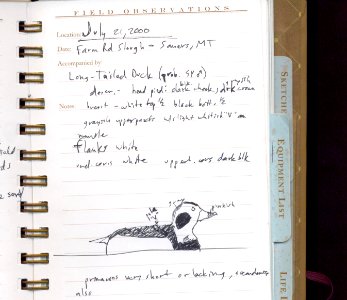 FIELD OBSERVATIONS
Location: July 21, 2000
Date: Farm Rd Slough - Somers, MT
Accompanied by
Long-Tailed Duck (prob. SY ♂)
head dark cheek, dark crown
Notes breast - white top ½ black bott. ½
grayish upperparts w/ light whitish "V" on
mantle
flanks white
und. covs white upper covs dark blk
gray
pinkish
primaries very short or lacking, secondaries
also
SKETCHES
EQUIPMENT LIST
LIFE